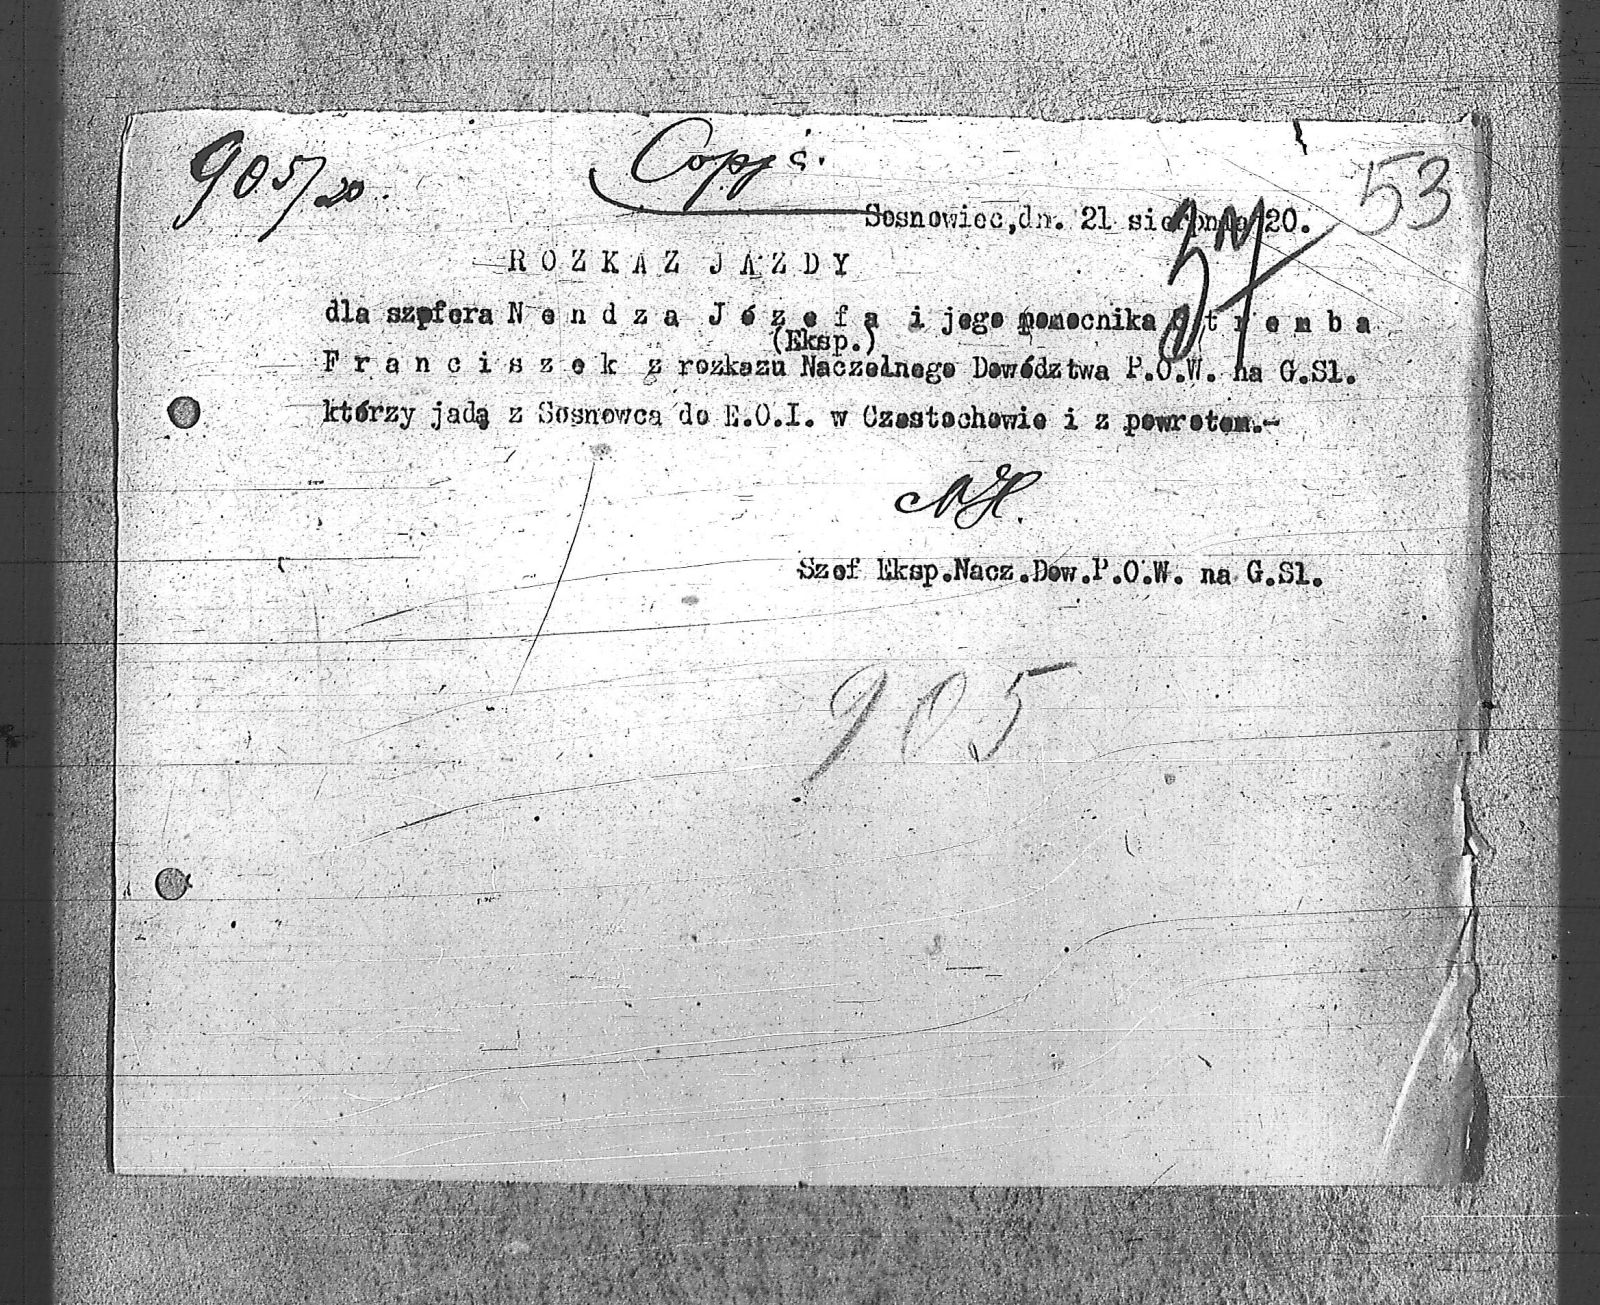 905/20
Copja.
53
Sosnowiec,dn. 21 sierpnia 20.
ROZKAZ JAZDY
dla szofera Nendza Józefa i jego pomocnika Stremba
(Eksp.)
Franciszek z rozkazu Naczelnego Dowództwa P.O.W. na G.Sl.
którzy jadą z Sosnowca do E.O.I. w Czestochowie i z powrotem.-
Szef Eksp.Nacz.Dow.P.O.W. na G.Sl.
905